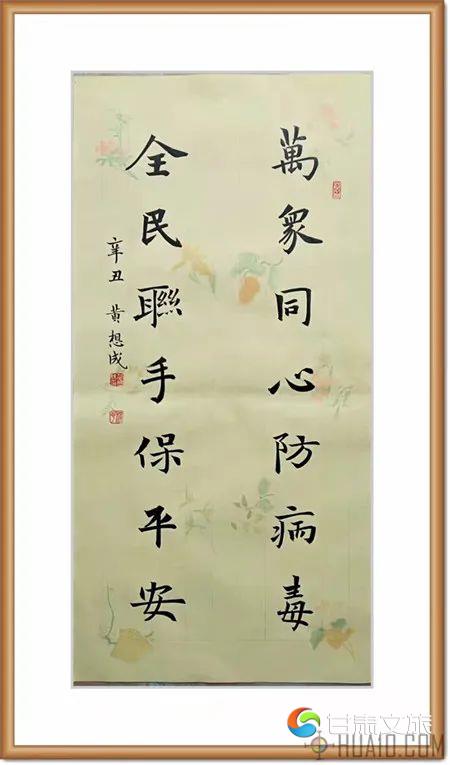 萬眾同心防病毒
全民聯手保平安
辛丑 黄想成
甘肃文旅
HUA10.COM